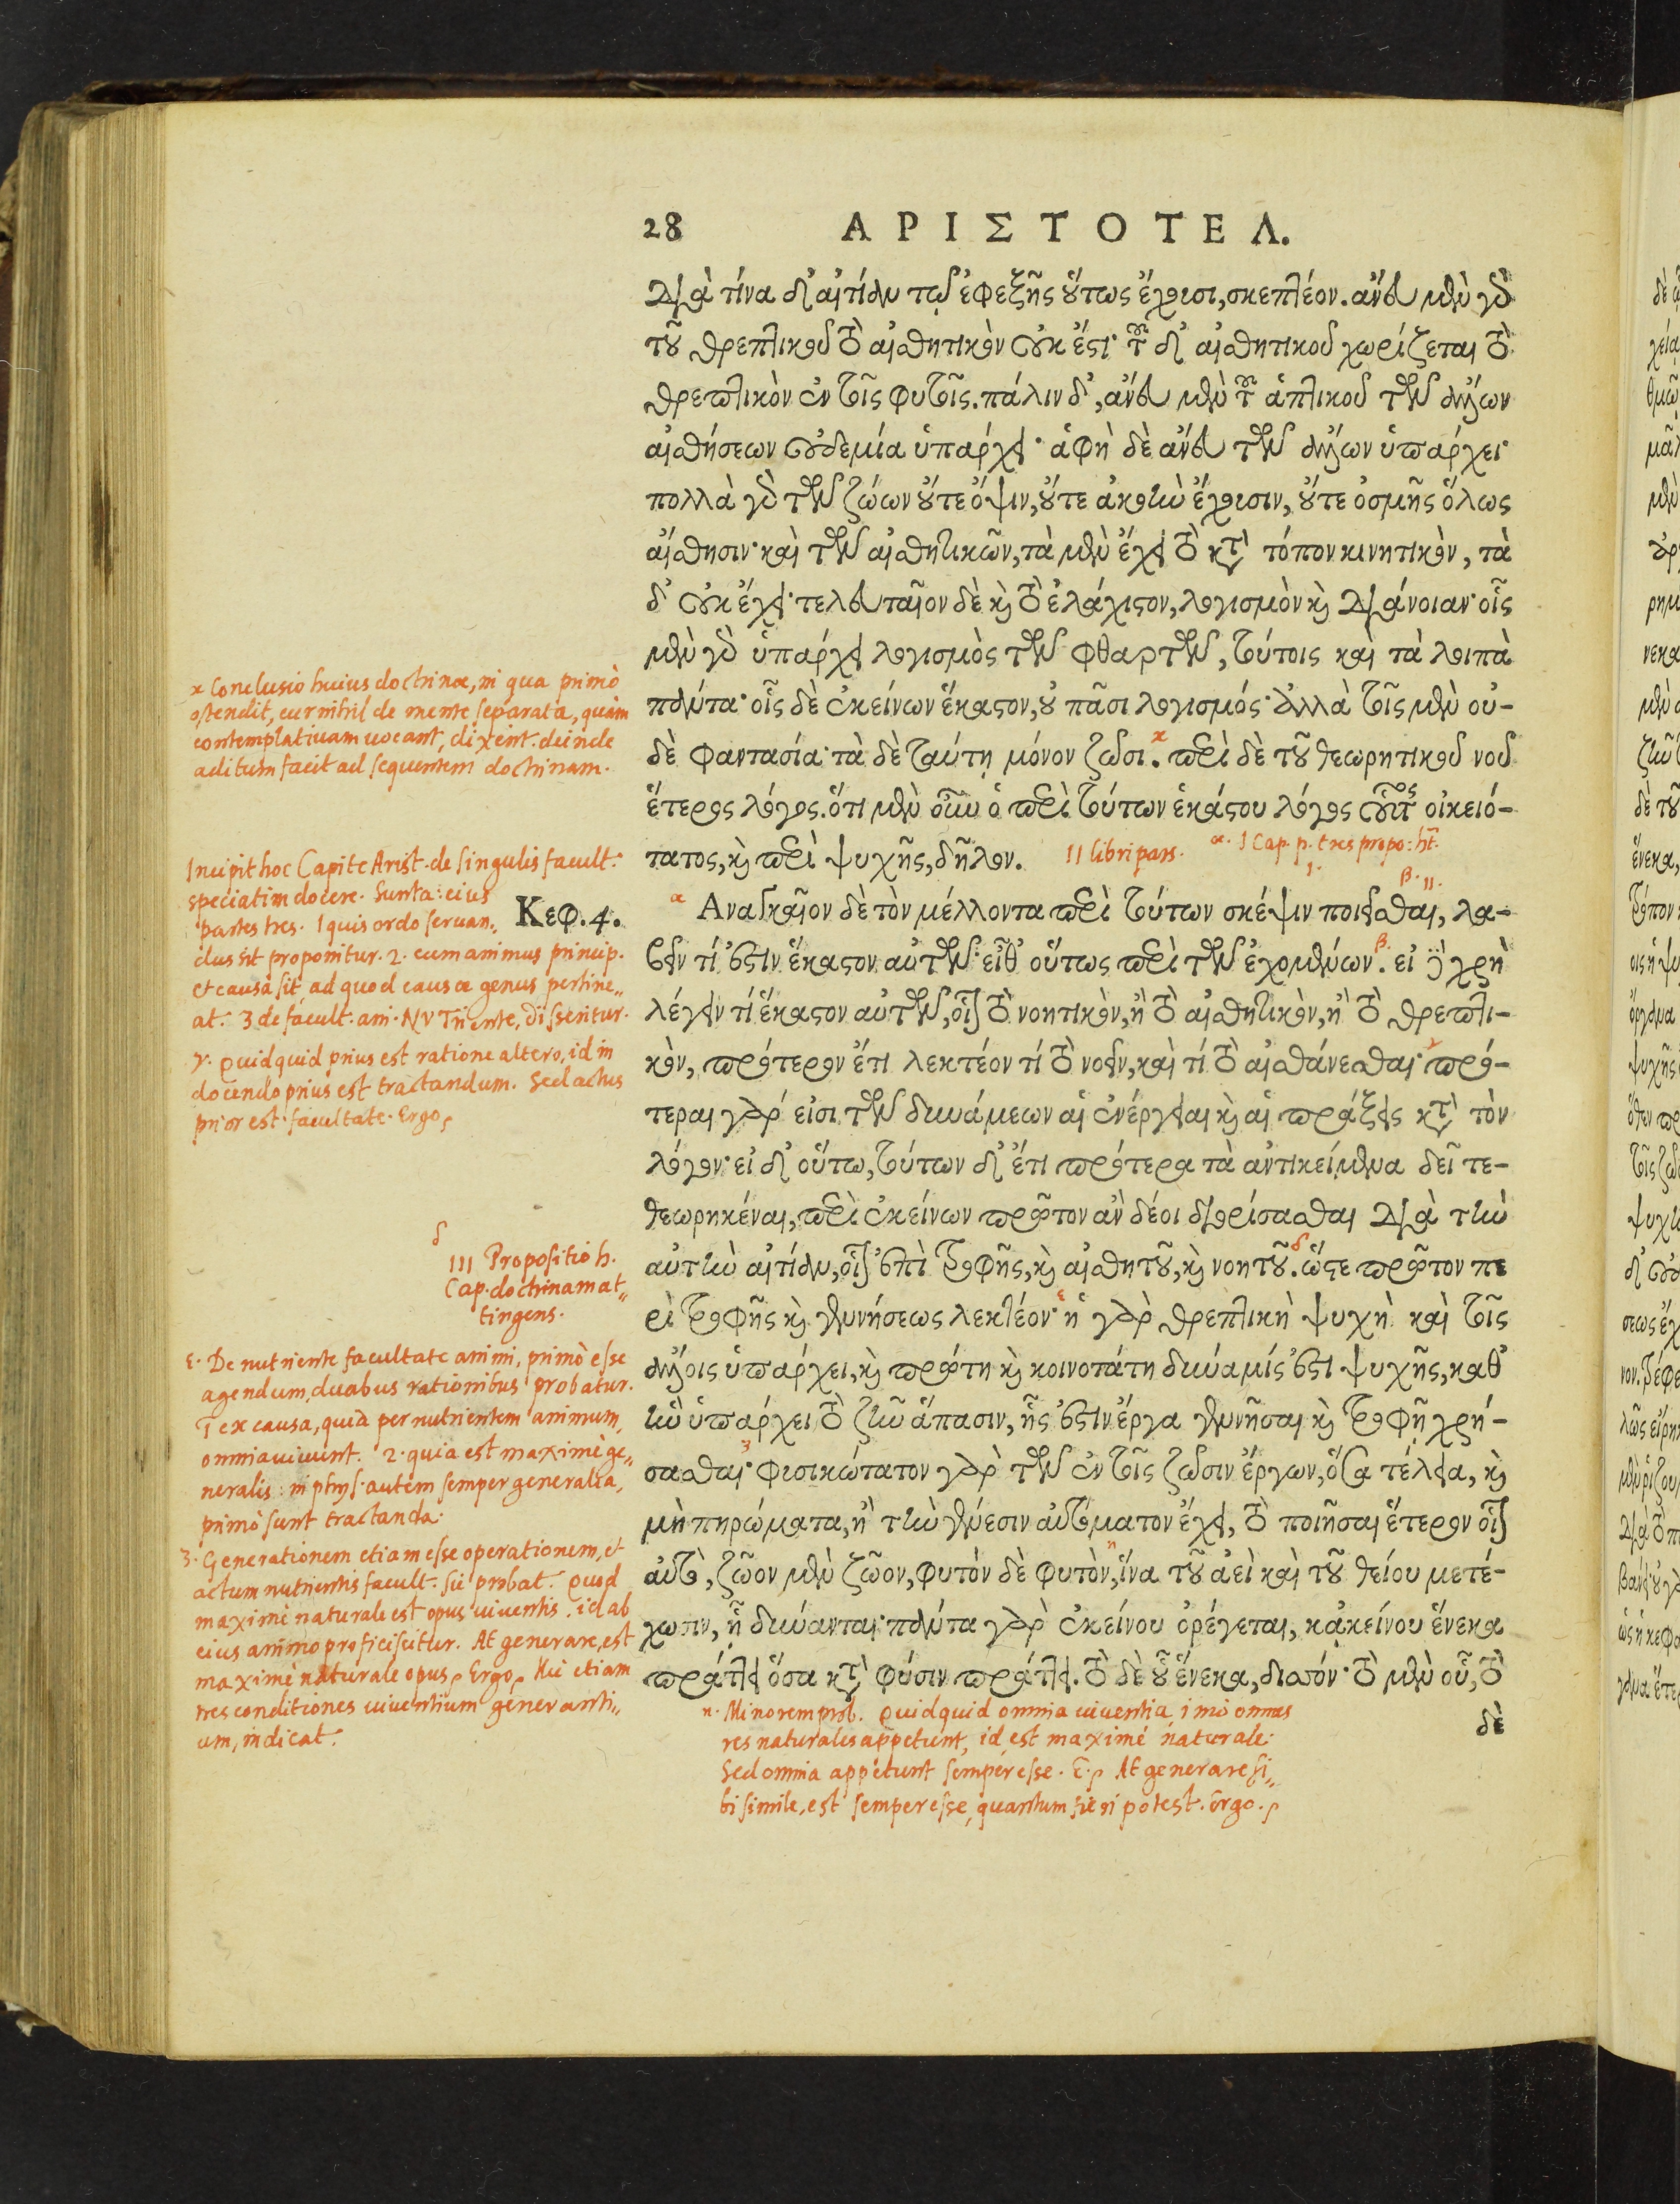 28 ΑΡΙΣΤΟΤΕΛ.
διὰ τίνα δ' αἰτίαν τῷ ἐφεξῆς οὕτως ἔχουσι, σκεπτέον. ἄνευ μὲν γὰρ
τοῦ θρεπτικοῦ τὸ αἰσθητικὸν οὐκ ἔστι· τοῦ δ' αἰσθητικοῦ χωρίζεται τὸ
θρεπτικὸν ἐν τοῖς φυτοῖς. πάλιν δ', ἄνευ μὲν τοῦ ἁπτικοῦ τῶν ἄλλων
αἰσθήσεων οὐδεμία ὑπάρχει· ἁφὴ δὲ ἄνευ τῶν ἄλλων ὑπάρχει·
πολλὰ γὰρ τῶν ζώων οὔτε ὄψιν, οὔτε ἀκοὴν ἔχουσιν, οὔτε ὀσμῆς ὅλως
αἴσθησιν· καὶ τῶν αἰσθητικῶν, τὰ μὲν ἔχει τὸ κατὰ τόπον κινητικὸν, τὰ
δ' οὐκ ἔχει· τελευταῖον δὲ καὶ τὸ ἐλάχιστον, λογισμὸν καὶ διάνοιαν· οἷς
μὲν γὰρ ὑπάρχει λογισμὸς τῶν φθαρτῶν, τούτοις καὶ τὰ λοιπὰ
πάντα· οἷς δὲ ἐκείνων ἕκαστον, οὐ πᾶσι λογισμός· ἀλλὰ τοῖς μὲν οὐ-
δὲ φαντασία· τὰ δὲ ταύτῃ μόνον ζῶσι. περὶ δὲ τοῦ θεωρητικοῦ νοῦ
ἕτερος λόγος. ὅτι μὲν οὖν ὁ περὶ τούτων ἑκάστου λόγος οὗτος οἰκειό-
τατος, καὶ περὶ ψυχῆς, δῆλον.
II libri pars. α. I Cap. p. tres propo: ht.
Κεφ. 4.
Αναγκαῖον δὲ τὸν μέλλοντα περὶ τούτων σκέψιν ποιεῖσθαι, λα-
βεῖν τί ἐστιν ἕκαστον αὐτῶν· εἶθ' οὕτως περὶ τῶν ἐχομένων. εἰ δὲ χρὴ
λέγειν τί ἕκαστον αὐτῶν, οἷον τὸ νοητικὸν, ἢ τὸ αἰσθητικὸν, ἢ τὸ θρεπτι-
κὸν, πρότερον ἔτι λεκτέον τί τὸ νοεῖν, καὶ τί τὸ αἰσθάνεσθαι· πρό-
τεραι γάρ εἰσι τῶν δυνάμεων αἱ ἐνέργειαι καὶ αἱ πράξεις κατὰ τὸν
λόγον· εἰ δ' οὕτω, τούτων δ' ἔτι πρότερα τὰ ἀντικείμενα δεῖ τε-
θεωρηκέναι, περὶ ἐκείνων πρῶτον ἂν δέοι διορίσασθαι διὰ τὴν
αὐτὴν αἰτίαν, οἷον ἐπὶ τροφῆς, καὶ αἰσθητοῦ, καὶ νοητοῦ. ὥστε πρῶτον πε
ρὶ τροφῆς καὶ γεννήσεως λεκτέον· ἡ γὰρ θρεπτικὴ ψυχὴ καὶ τοῖς
ἄλλοις ὑπάρχει, καὶ πρώτη καὶ κοινοτάτη δύναμίς ἐστι ψυχῆς, καθ'
ἣν ὑπάρχει τὸ ζῆν ἅπασιν, ἧς ἐστιν ἔργα γεννῆσαι καὶ τροφῇ χρή-
σασθαι· φυσικώτατον γὰρ τῶν ἐν τοῖς ζῶσιν ἔργων, ὅσα τέλεια, καὶ
μὴ πηρώματα, ἢ τὴν γένεσιν αὐτόματον ἔχει, τὸ ποιῆσαι ἕτερον οἷον
αὐτὸ, ζῶον μὲν ζῶον, φυτὸν δὲ φυτὸν, ἵνα τοῦ ἀεὶ καὶ τοῦ θείου μετέ-
χωσιν, ᾗ δύνανται· πάντα γὰρ ἐκείνου ὀρέγεται, κἀκείνου ἕνεκα
πράττει ὅσα κατὰ φύσιν πράττει. τὸ δὲ οὗ ἕνεκα, διττόν· τὸ μὲν οὗ, τὸ
δὲ
κ Conclusio huius doctrinæ, in qua primò
ostendit, cur nihil de mente separata, quam
contemplatiuam uocant, dixerit. deinde
aditum facit ad sequentem doctrinam.
Incipit hoc Capite Arist. de singulis facult.
speciatim docere. Sunt a: eius
partes tres. 1 quis ordo seruan„
dus sit proponitur. 2. cum animus princip.
et causa sit, ad quod causæ genus pertine„
at. 3 de facult. ani. NVTriente, disseritur.
γ. Quidquid prius est ratione altero, id in
docendo prius est tractandum. Sed actus
prior est facultate. Ergo
δ
III Propositio h.
Cap. doctrinam at„
tingens.
ε. De nutriente facultate animi, primò esse
agendum, duabus rationibus probatur.
1 ex causa, quia per nutrientem animum,
omnia uiuunt. 2. quia est maximè ge„
neralis: in phys. autem semper generalia,
primò sunt tractanda.
3. Generationem etiam esse operationem, et
actum nutrientis facult. sic probat. Quod
maximè naturale est opus uiuentis, id ab
eius animo proficiscitur. At generare, est
maximè naturale opus, Ergo, Hic etiam
tres conditiones uiuentium generanti„
um, indicat.
η. Minorem prob. Quidquid omnia uiuentia, imò omnes
res naturales appetunt, id est maximè naturale:
Sed omnia appetunt semper esse. E. At generare si„
bi simile, est semper esse, quantum fieri potest. Ergo.